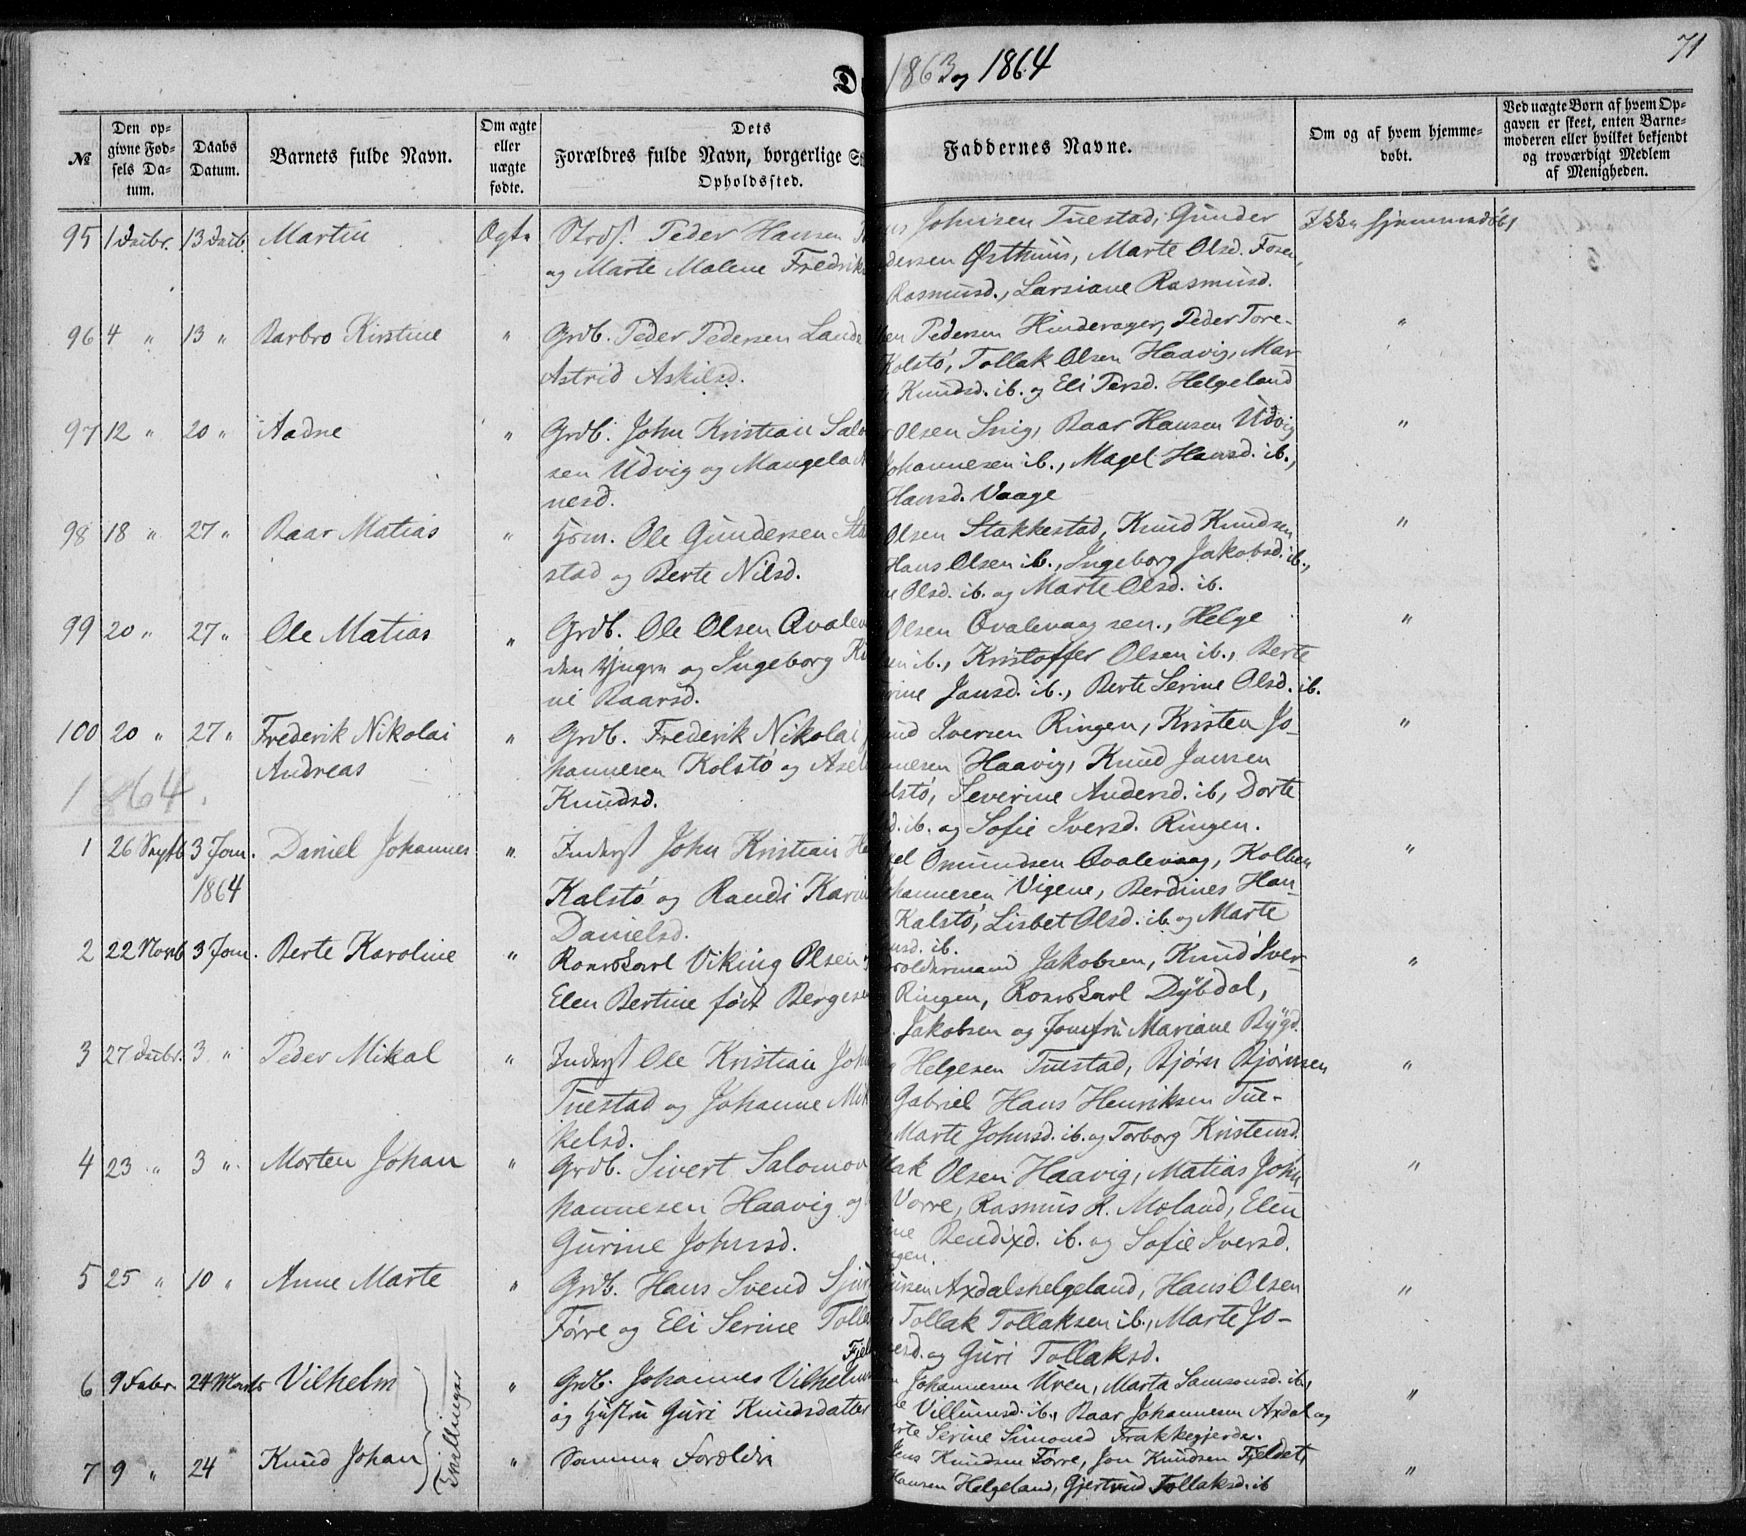 71
1863 og 1864
№
Den op-
givne Fød-
sels Da-
tum.
Daabs
Datum.
Barnets fulde Navn.
Om ægte
eller
uægte
fødte.
Dets
Forældres fulde Navn, borgerlige S
Opholdssted.
Faddernes Navne.
Om og af hvem hjemme-
døbt.
Ved uægte Børn af hvem Op-
gaven er skeet, enten Barne-
moderen eller hvilket bekjendt
og troværdigt Medlem
af Menigheden.
95 1 Decbr. 13 Decb. Martin Ægte Strds. Peder Hansen
og Marte Malene Fredrik
Johnsen Tuestad, Gunder
dersen Østhuus, Marte Olsd. Fosen,
Rasmusd., Larsiane Rasmusd.
Ikke hjemmedøbt
96 4 " 13 " Barbro Kirstine " Grdb. Peder Pedersen Lands
Astrid Askilsd.
Pedersen Hinderager, Peder Tore-
Kolstø, Tollak Olsen Haavig, Mar-
Knudsd. ib. og Eli Persd. Helgeland
"
97 12 " 20 " Aadne " Grdb. John Kristian Salo
sen Udvig og Mangela
nesd.
Olsen Snig, Baar Hansen Udvig
Johannesen ib., Magel Hansd. ib.,
Hansd. Vaage
"
98 18 " 27 " Baar Matias " Hsm. Ole Gundersen Sta
stad og Berte Nilsd.
Olsen Stakkestad, Knud Knudsen
Hans Olsen ib., Ingeborg Jakobsd. ib.,
Olsd. ib. og Marte Olsd. ib.
"
99 20 " 27 " Ole Matias " Grdb. Ole Olsen Qvalev
den Yngre og Ingeborg K
ne Baarsd.
Olsen Qvalevaag sen., Helge
sen ib., Kristoffer Olsen ib., Berte
rine Jansd. ib., Berte Serine Olsd. ib.
"
100 20 " 27 " Frederik Nikolai
Andreas
" Grdb. Frederik Nikolai
hannesen Kolstø og Asel
Knudsd.
Iversen Ringen, Kristen Jo-
nesen Haavig, Knud Jansen
olstø, Severine Andersd. ib, Dorte
d. ib. og Sofie Iversd. Ringen.
"
1864.
1 26 Septb 3 Jan.
1864
Daniel Johannes " Inderst John Kristian H
Kalstø og Randi Karin
Danielsd.
Omundsen Qvalevaag, Kolben
hannesen Vigene, Berdines Han-
Kalstø, Lisbet Olsd. ib. og Marte
usd. ib.
"
2 22 Novb 3 Jan. Berte Karoline " Viking Olsen
Elen Bertine født Bergesen
oldermand Jakobsen, Knud Iver-
Ringen, Dybdal,
Jakobsen og Jomfru Mariane Bygd.
"
3 27 Decbr. 3 " Peder Mikal " Inderst Ole Kristian Joh
Tuestad og Johanne Mik
kelsd.
Helgesen Tuestad, Bjørn Bjørnsen
Gabriel Hans Henriksen Tue-
Marte Johnsd. ib. og Torborg Kristensd.
"
4 23 " 3 " Morten Johan " Grdb. Sivert Salomon
hannesen Haavig og
Gurine Johnsd.
lak Olsen Haavig, Matias John
Vorre, Rasmus R. Moland, Elen
ine Bendixd. ib. og Sofie Iversd.
ngen.
"
5 25 " 10 " Anne Marte " Grdb. Hans Svend Sjur
Førre og Eli Serine Tolla
ursen Axdalshelgeland, Hans Olsen
Tollak Tollaksen ib., Marte Jo-
esd. og Guri Tollaksd.
"
6 9 Febr. 24 Marts Vilhelm " Grdb. Johannes Vilhelm Fjel
og Hustru Guri Knudsdatter
Johannesen Uren, Marta Samsonsd. ib.,
Villumsd. ib., Baar Johannesen Axdal og
rte Serine Simonsd Frakkegjerde.
"
Tvillinger
7 9 " 24 " Knud Johan " Samme Forældre
Jens Knudsen Førre, Jon Knudsen Fjeldet,
Hansen Helgeland, Gjertrud Tollaksd. ib
"